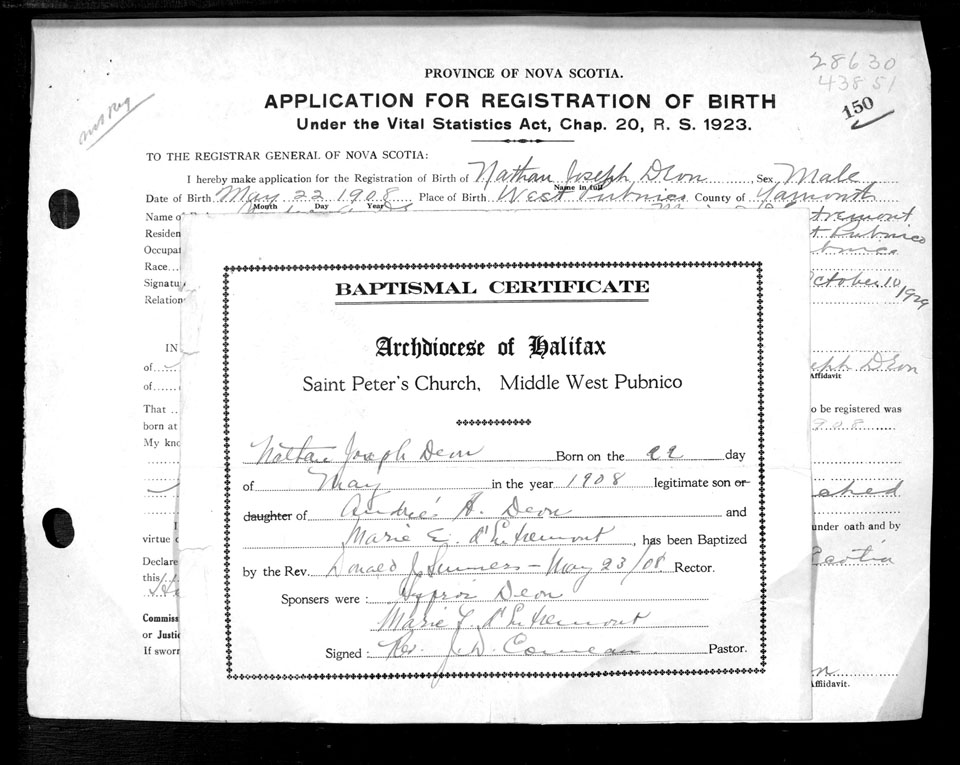 28630
43851
150
not Reg
PROVINCE OF NOVA SCOTIA.
APPLICATION FOR REGISTRATION OF BIRTH
Under the Vital Statistics Act, Chap. 20, R. S. 1923.
TO THE REGISTRAR GENERAL OF NOVA SCOTIA:
I hereby make application for the Registration of Birth of Nathan Joseph DEon, Sex Male
Name in full
Date of Birth May 22 1908 Place of Birth West Pubnico County of Yarmouth
Month Day Year
Name of
tremont
Residen
t Pubnico
Occupat
bnico
Race
Signatu
October 10 1929
Relation
BAPTISMAL CERTIFICATE
Archdiocese of Halifax
Saint Peter's Church, Middle West Pubnico
Nathan Joseph Deon Born on the 22 day
of May in the year 1908 legitimate son or
daughter of André A. Deon and
Marie E. d'Entremont, has been Baptized
by the Rev. Donald J. - May 23/08 Rector.
Sponsers were : Deon
Marie d'Entremont
Signed : Rev. J. D. Comeau Pastor.
IN
of
seph DEon
Affidavit
of
That
o be registered was
born at
908
My kno
shed
I
under oath and by
virtue o
Declare
this
Commiss
or Justic
If sworn
on
Affidavit.